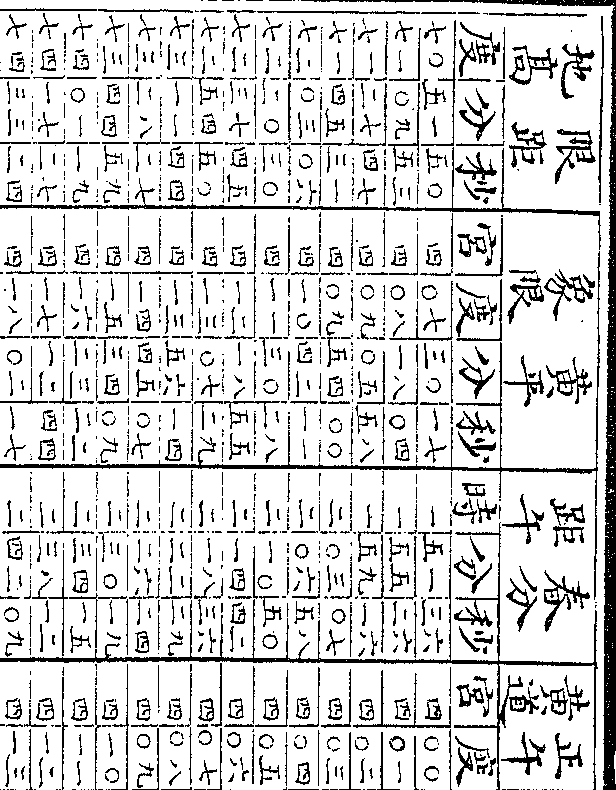 地高 限距 象限 黃平 距午 春分 黃道 正午
度 分 秒 宮 度 分 秒 時 分 秒 宮 度
七〇 五一 五〇 四 〇七 三〇 一七 一 五一 三六 四 〇〇
七一 〇九 五三 四 〇八 一八 〇四 一 五五 二六 四 〇一
七一 二七 四七 四 〇九 〇五 五八 一 五九 一六 四 〇二
七一 四五 三一 四 〇九 五四 〇〇 二 〇三 〇七 四 〇三
七二 〇三 〇六 四 一〇 四二 一一 二 〇六 五八 四 〇四
七二 二〇 三〇 四 一一 三〇 二八 二 一〇 五〇 四 〇五
七二 三七 四五 四 一二 一八 五五 二 一四 四二 四 〇六
七二 五四 五〇 四 一三 〇七 二九 二 一八 三六 四 〇七
七三 一一 四四 四 一三 五六 一四 二 二二 二九 四 〇八
七三 二八 二七 四 一四 四五 〇七 二 二六 二四 四 〇九
七三 四四 五九 四 一五 三四 〇九 二 三〇 一九 四 一〇
七四 〇一 一九 四 一六 二三 二二 二 三四 一五 四 一一
七四 一七 二七 四 一七 一二 四四 二 三八 一二 四 一二
七四 三三 二四 四 一八 〇二 一七 二 四二 〇九 四 一三